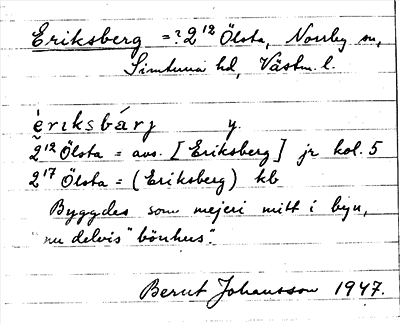 Eriksberg =? 2¹² Ölsta, Norrby sn,
Simtuna hd, Västm. l.
èrɩksbárj y.
2¹² Ölsta = avs. [Eriksberg] jr kol. 5
2¹⁷ Ölsta = (Eriksberg) kb
Byggdes som mejeri mitt i byn,
"nu delvis "bönhus".
Bernt Johansson 1947.